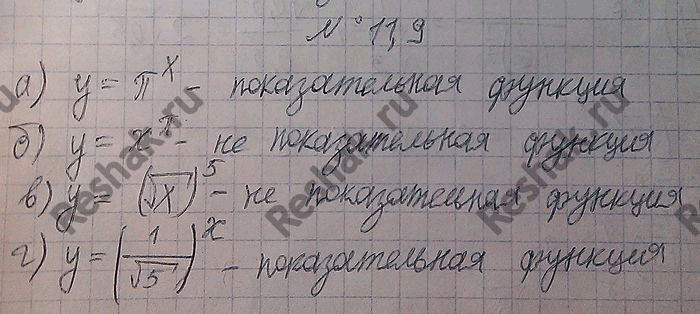 № 11,9
а) y = π^x - показательная функция
б) y = x^π - не показательная функция
в) y = (√x)^5 - не показательная функция
г) y = (1/√5)^x - показательная функция
Reshak.ru
Reshak.ru
Reshak.ru